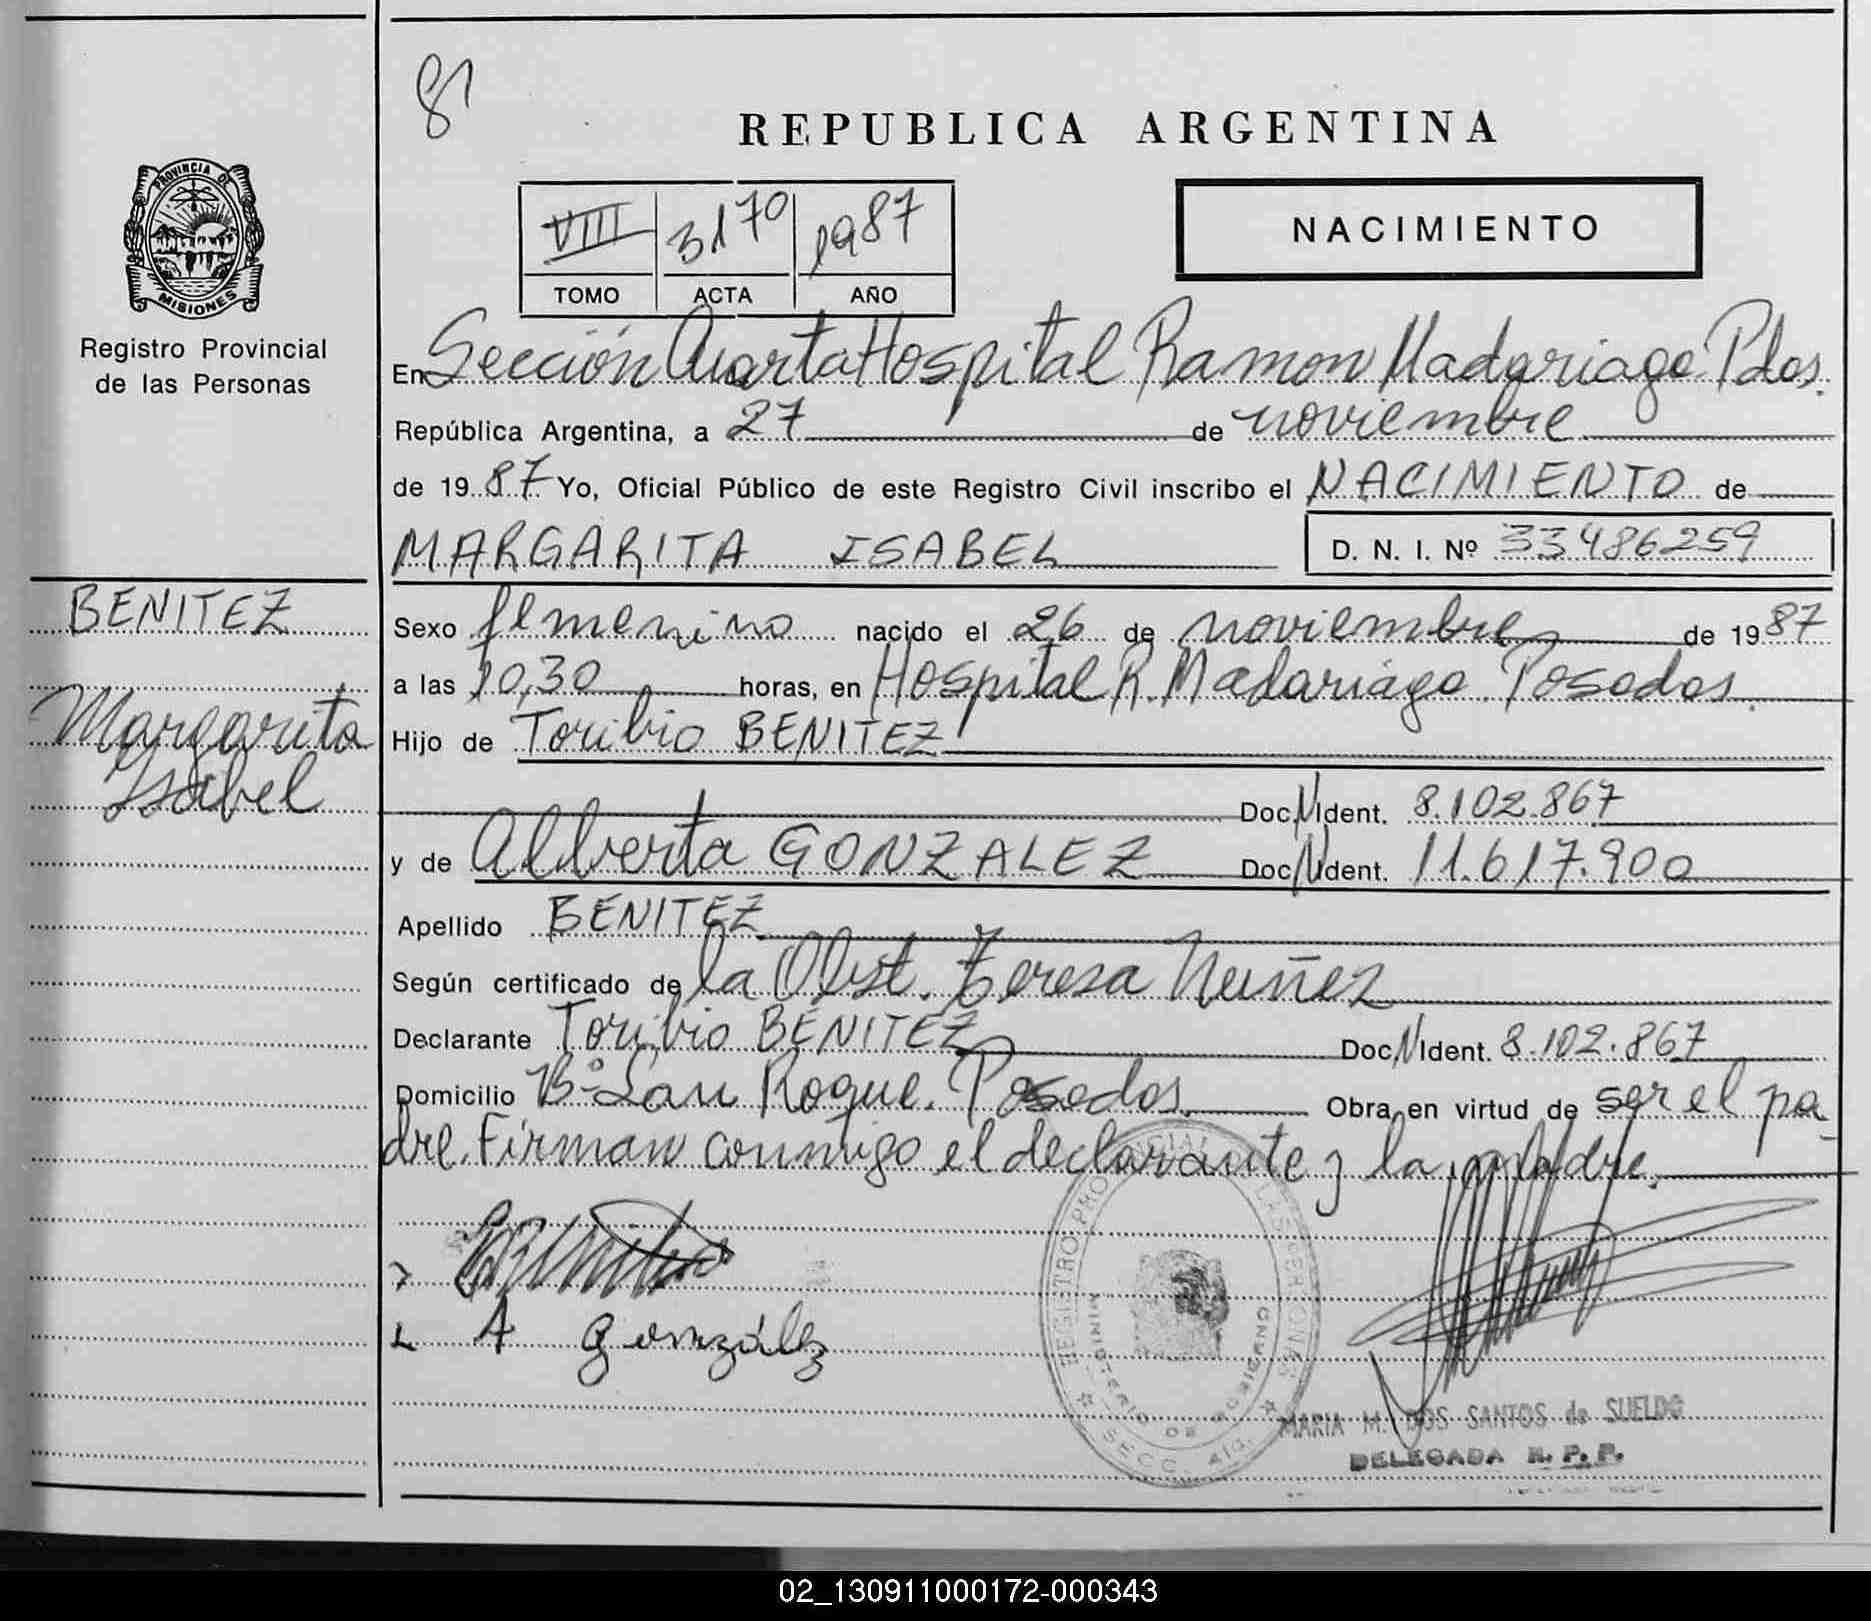 81
REPUBLICA ARGENTINA
PROVINCIA DE
MISIONES
Registro Provincial
de las Personas
VIII 3170 1987
TOMO ACTA AÑO
NACIMIENTO
En Sección Cuarta Hospital Ramon Madariaga. Pdas.
República Argentina, a 27 de noviembre
de 1987 Yo, Oficial Público de este Registro Civil inscribo el NACIMIENTO de
MARGARITA ISABEL D. N. I. Nº 33486259
BENITEZ
Margarita
Isabel
Sexo femenino nacido el 26 de noviembre de 1987
a las 10,30 horas, en Hospital R. Madariaga. Posadas.
Hijo de Toribio BENITEZ
Doc.N.Ident. 8.102.867
y de Alberta GONZALEZ Doc.N.Ident. 11.617.900
Apellido BENITEZ
Según certificado de la Obst. Teresa Nuñez
Declarante Toribio BENITEZ Doc.N.Ident. 8.102.867
Domicilio Bº San Roque. Posadas. Obra en virtud de ser el pa-
dre. Firman conmigo el declarante y la madre.
A González
REGISTRO PROVINCIAL DE LAS PERSONAS
MINISTERIO DE GOBIERNO
SECC. 4ta.
MARIA M. DOS SANTOS de SUELDO
DELEGADA R. P. P.
02_130911000172-000343